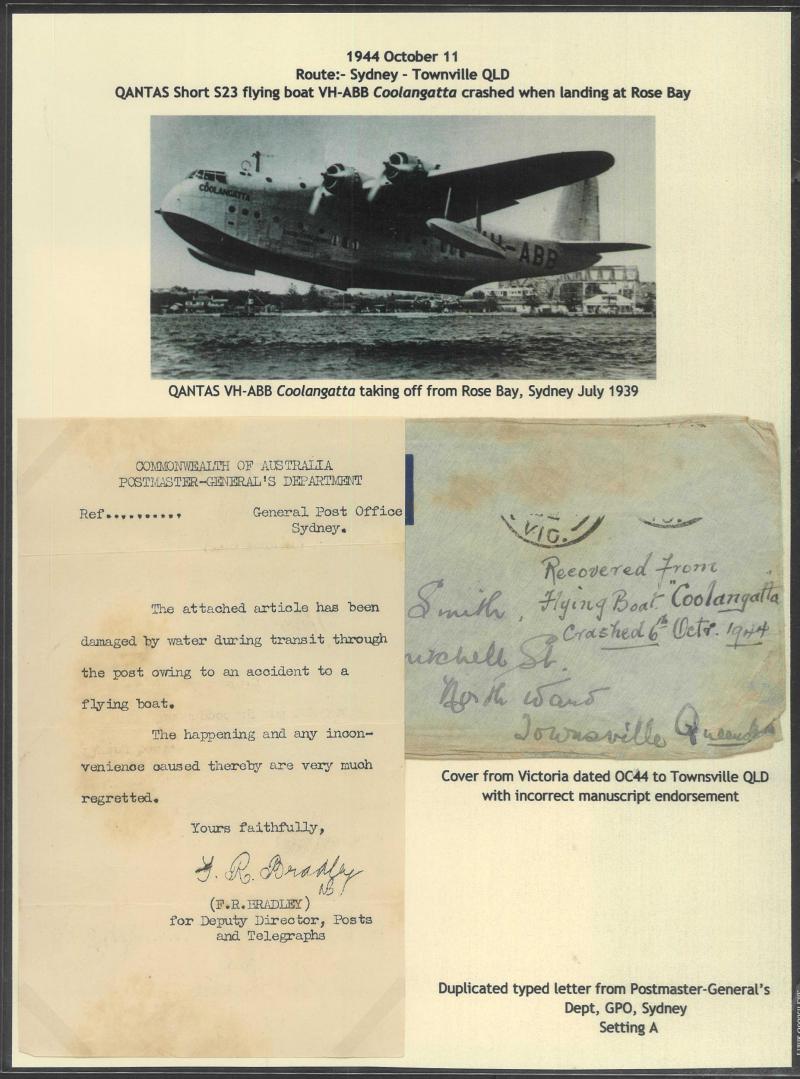 1944 October 11
Route:- Sydney - Townville QLD
QANTAS Short S23 flying boat VH-ABB Coolangatta crashed when landing at Rose Bay
COOLANGATTA
VH-ABB
QANTAS VH-ABB Coolangatta taking off from Rose Bay, Sydney July 1939
COMMONWEALTH OF AUSTRALIA
POSTMASTER-GENERAL'S DEPARTMENT
Ref..........
General Post Office
Sydney.
The attached article has been
damaged by water during transit through
the post owing to an accident to a
flying boat.
The happening and any incon-
venience caused thereby are very much
regretted.
Yours faithfully,
F. R. Bradley
(F.R.BRADLEY)
for Deputy Director, Posts
and Telegraphs
VIC.
Recovered from
Flying Boat "Coolangatta
Crashed 6th Octr. 1944
Smith,
St.
North Ward
Townsville
Cover from Victoria dated OC44 to Townsville QLD
with incorrect manuscript endorsement
Duplicated typed letter from Postmaster-General's
Dept, GPO, Sydney
Setting A